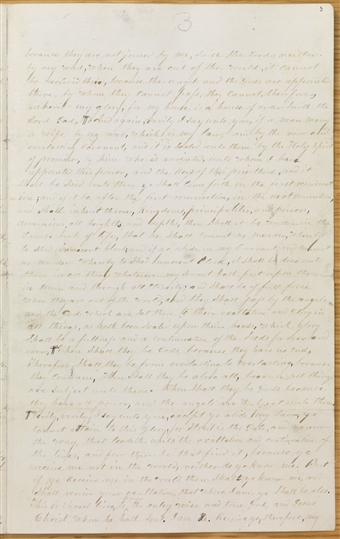 3
3
because they are not joined by me, saith the Lord, neither
by my word, when they are out of the world, it cannot
be received there, because the angels and the Gods are appointed
there, by whom they cannot pass, they cannot, therefore,
inherit my glory, for my house is a house of order, saith the
Lord God, And again, verily I say unto you, if a man marry
a wife by my word, which is my law, and by the new and
everlasting covenant, and it is sealed unto them by the Holy Spirit
of promise, by him who is anointed, unto whom I have
appointed this power, and the keys of this priesthood, and it
shall be said unto them, ye shall come forth in the first resurrect
ion, and if it be after the first resurrection, in the next resurrection
and shall inherit thrones, kingdoms, principalities, and powers,
dominions, all heights depths, then shall it be
to shed innocent blood, and if ye abide in my covenant, and commit
no murder whereby to shed innocent blood, it shall be done unto
them in all things whatsoever my servant hath put upon them
in time and through all eternity, and shall be of full force
when they are out of the world, and they shall pass by the angels
and the Gods which are set there, to their exaltation and glory in
all things, as hath been sealed upon their heads, which glory
shall be a fulness and a continuation of the seeds for ever and
ever, Then shall they be Gods, because they have no end,
therefore shall they be from everlasting to everlasting, because
they continue, Then shall they be above all, because all things
are subject unto them, Then shall they be Gods, because
they have all power, and the angels are subject unto them
Verily, verily I say unto you, except ye abide my law, ye
cannot attain to this glory, for strait is the gate, and narrow
the way, that leadeth unto the exaltation and continuation of
the lives, and few there be that find it, because ye
receive me not in the world, neither do ye know me, But
if ye receive me in the world, then shall ye know me, and
shall receive your exaltation, that where I am, ye shall be also,
This is eternal lives, to know the only wise and true God, and Jesus
Christ whom he hath sent. I am he. Receive ye, therefore, my